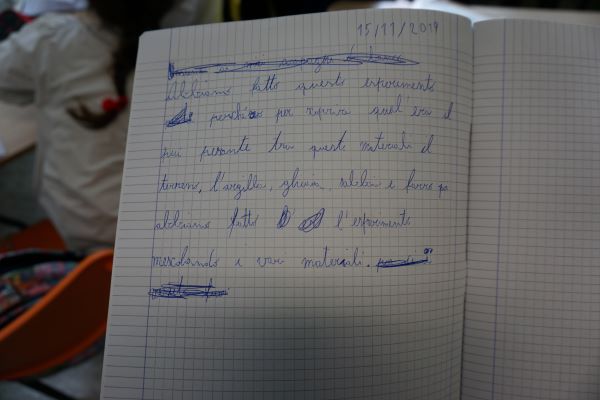 15/11/2019
Abbiamo fatto questo esperimento
perché per sapere qual era il
più pesante tra questi materiali il
terreno, l'argilla, ghiaia, sabbia e farro poi
abbiamo fatto l'esperimento
mescolando i vari materiali.